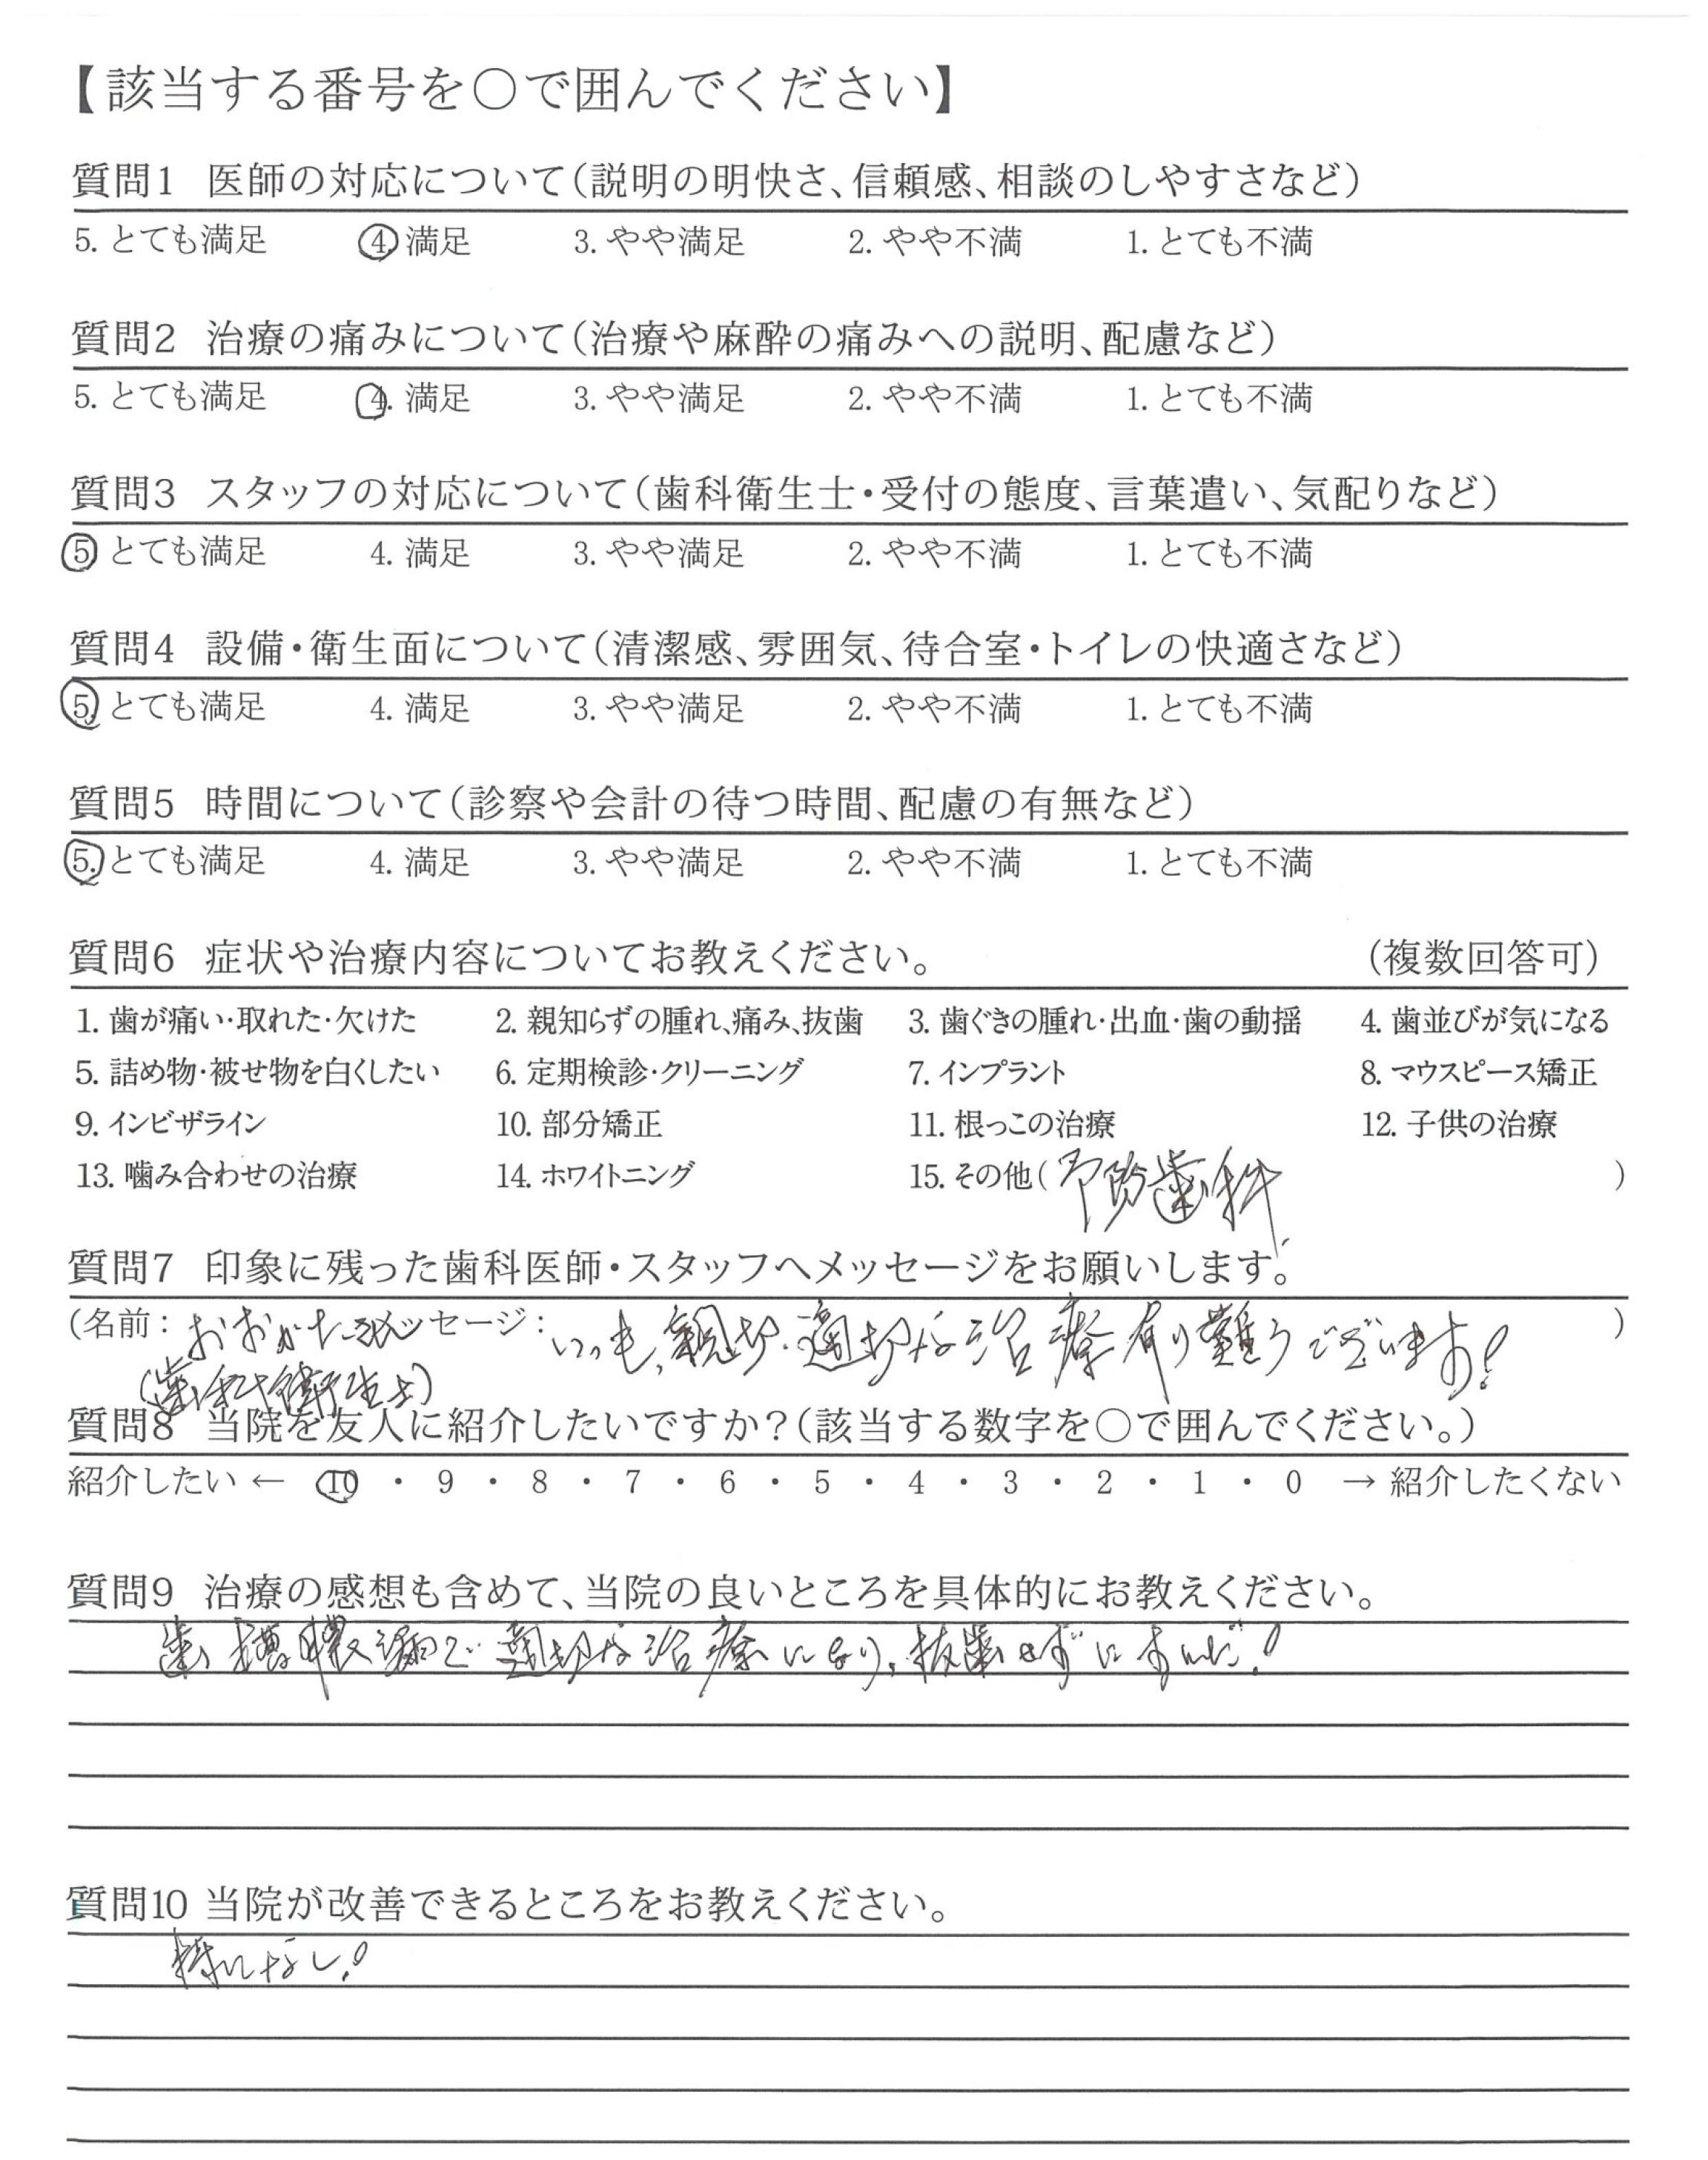 【該当する番号を○で囲んでください】
質問1 医師の対応について(説明の明快さ、信頼感、相談のしやすさなど)
5. とても満足 4. 満足 3. やや満足 2. やや不満 1. とても不満
質問2 治療の痛みについて(治療や麻酔の痛みへの説明、配慮など)
5. とても満足 4. 満足 3. やや満足 2. やや不満 1. とても不満
質問3 スタッフの対応について(歯科衛生士・受付の態度、言葉遣い、気配りなど)
5 とても満足 4. 満足 3. やや満足 2. やや不満 1. とても不満
質問4 設備・衛生面について(清潔感、雰囲気、待合室・トイレの快適さなど)
5. とても満足 4. 満足 3. やや満足 2. やや不満 1. とても不満
質問5 時間について(診察や会計の待つ時間、配慮の有無など)
5. とても満足 4. 満足 3. やや満足 2. やや不満 1. とても不満
質問6 症状や治療内容についてお教えください。 (複数回答可)
1. 歯が痛い・取れた・欠けた 2. 親知らずの腫れ、痛み、抜歯 3. 歯ぐきの腫れ・出血・歯の動揺 4. 歯並びが気になる
5. 詰め物・被せ物を白くしたい 6. 定期検診・クリーニング 7. インプラント 8. マウスピース矯正
9. インビザライン 10. 部分矯正 11. 根っこの治療 12. 子供の治療
13. 噛み合わせの治療 14. ホワイトニング 15. その他(予防歯科)
質問7 印象に残った歯科医師・スタッフへメッセージをお願いします。
(名前: おおがたさん メッセージ: いつも、親切・適切な治療有り難うございます! )
(歯科衛生士)
質問8 当院を友人に紹介したいですか?(該当する数字を○で囲んでください。)
紹介したい ← 10 ・ 9 ・ 8 ・ 7 ・ 6 ・ 5 ・ 4 ・ 3 ・ 2 ・ 1 ・ 0 → 紹介したくない
質問9 治療の感想も含めて、当院の良いところを具体的にお教えください。
歯槽膿漏で適切な治療になり、抜歯せずにすんだ!
質問10 当院が改善できるところをお教えください。
特になし!